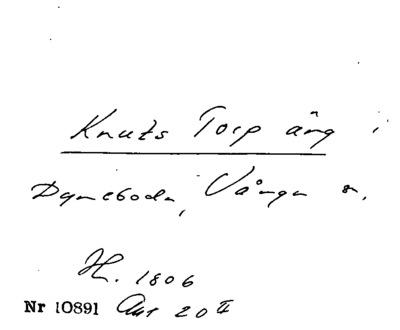 Knuts Torp äng i
Dyneboda, Vånga s.
H. 1806
Nr 10891 Aut 20 II